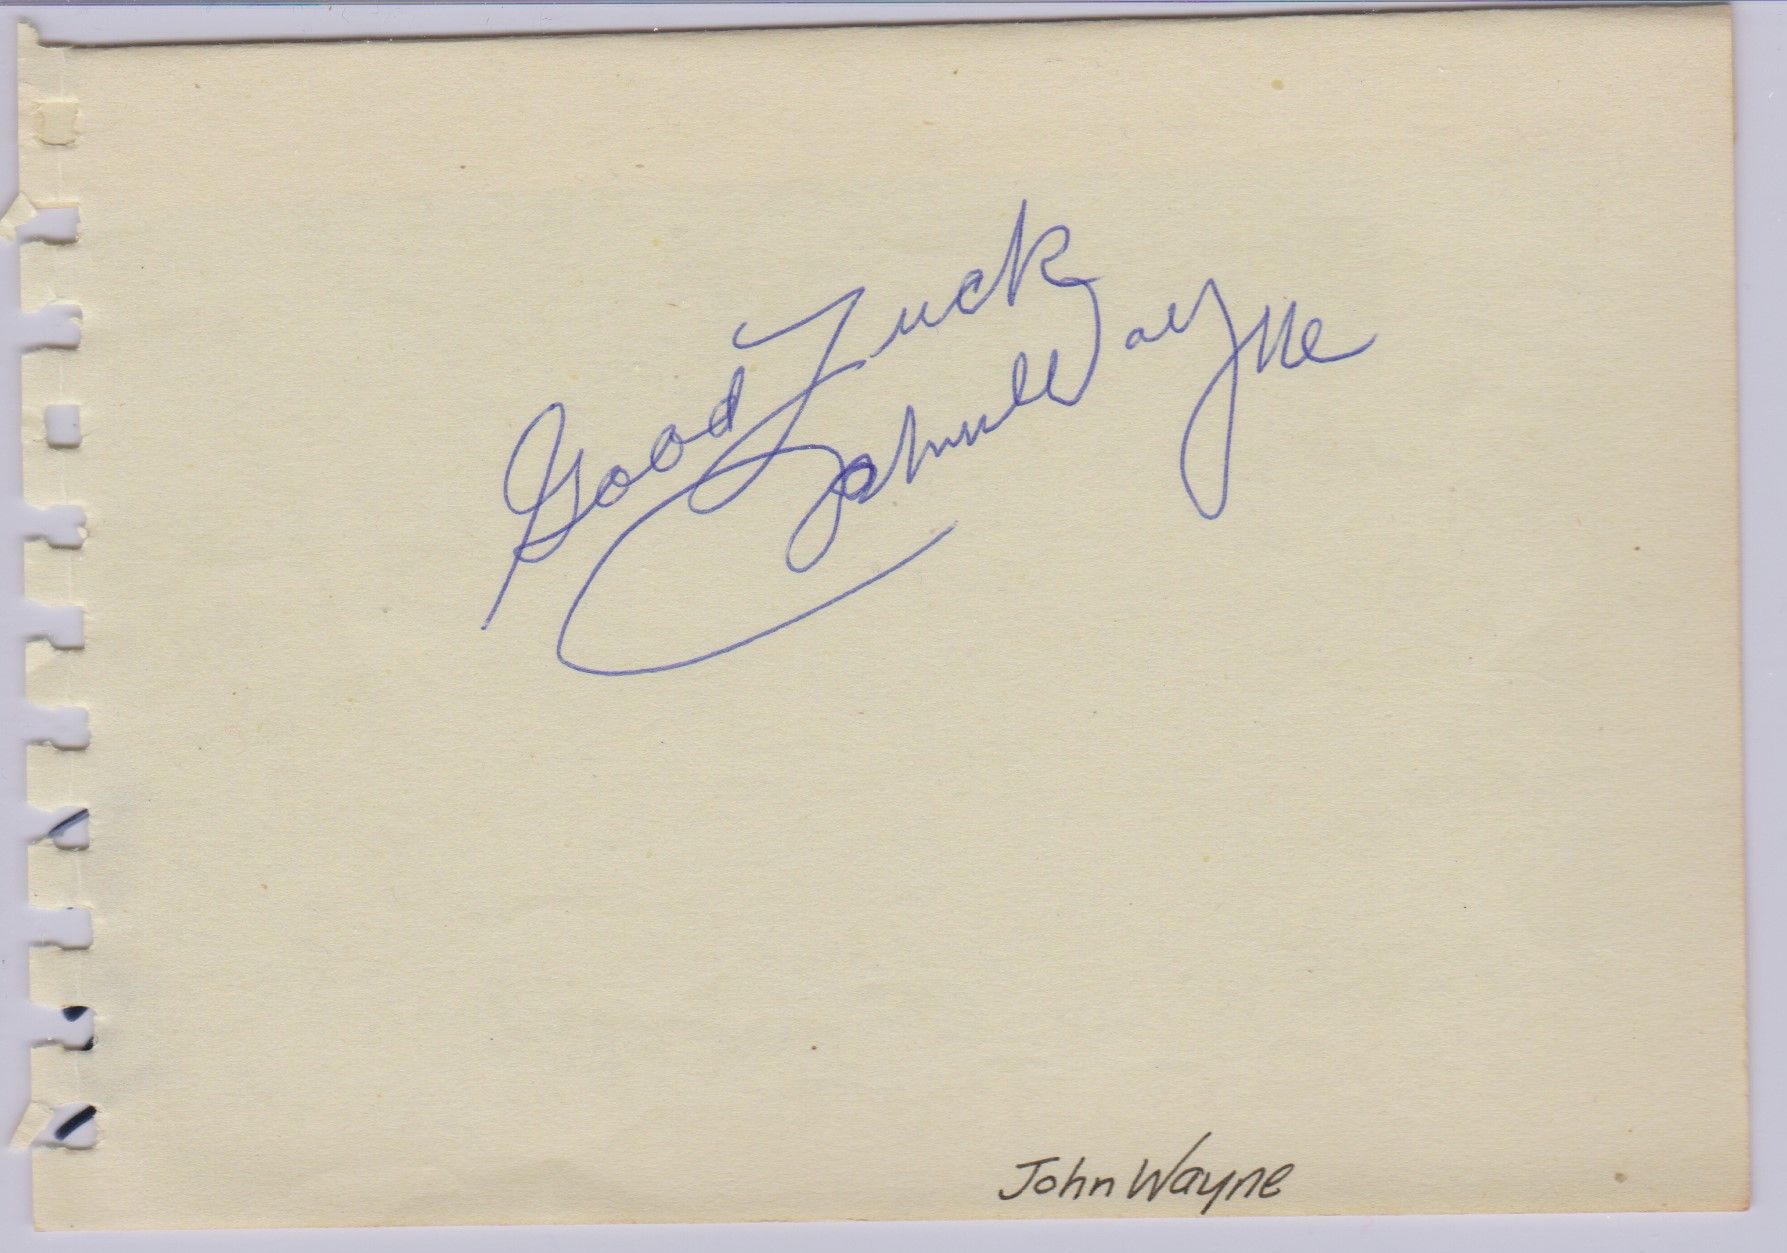 Good Luck
John Wayne
John Wayne